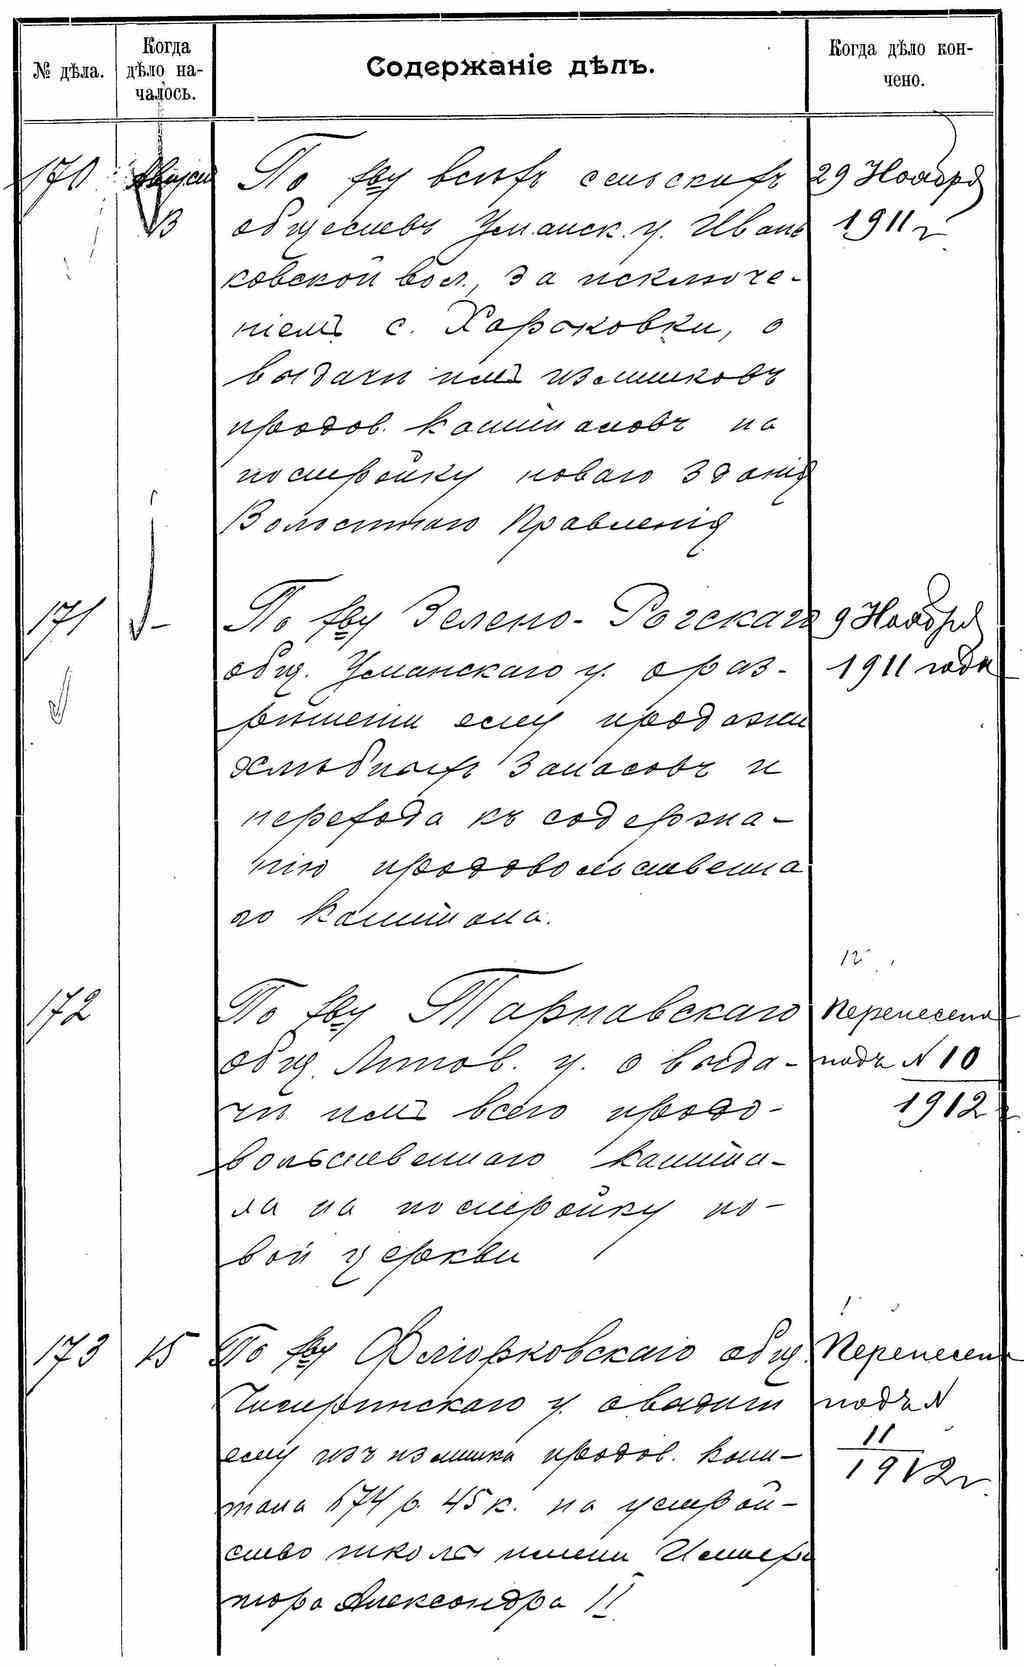 № дѣла.
Когда дѣло на-чалось.
Содержаніе дѣлъ.
Когда дѣло кон-чено.
170
13
По х-ву всѣхъ сельскихъ
обществъ Уманск. у. Ивань
ковской вол., за исключе-
ніемъ с. Харьковки, о
выдачи имъ излишковъ
продов. капиталовъ на
постройку новаго зданія
Волостнаго Правленія
29 Ноября
1911 г.
171
По х-ву Зелено-Рогскаго
общ. Уманскаго у. о раз-
рѣшеніи ему продажи
хлѣбныхъ запасовъ и
перехода къ содержа-
нію продовольственна
го капитала.
9 Ноября
1911 года
172
По х-ву Тарнавскаго
общ. Липов. у. о выда-
чи имъ всего продо-
вольственнаго капита-
ла на постройку но-
вой церкви
12
Перенесена
подъ № 10
1912 г
173
15
По х-ву Флярковскаго общ.
Чигиринскаго у. о выдачи
ему изъ излишка продов. капи-
тала 674 р. 45 к. на устрой-
ство школы имени Импера
тора Александра II
Перенесена
подъ №
11
1912 г.